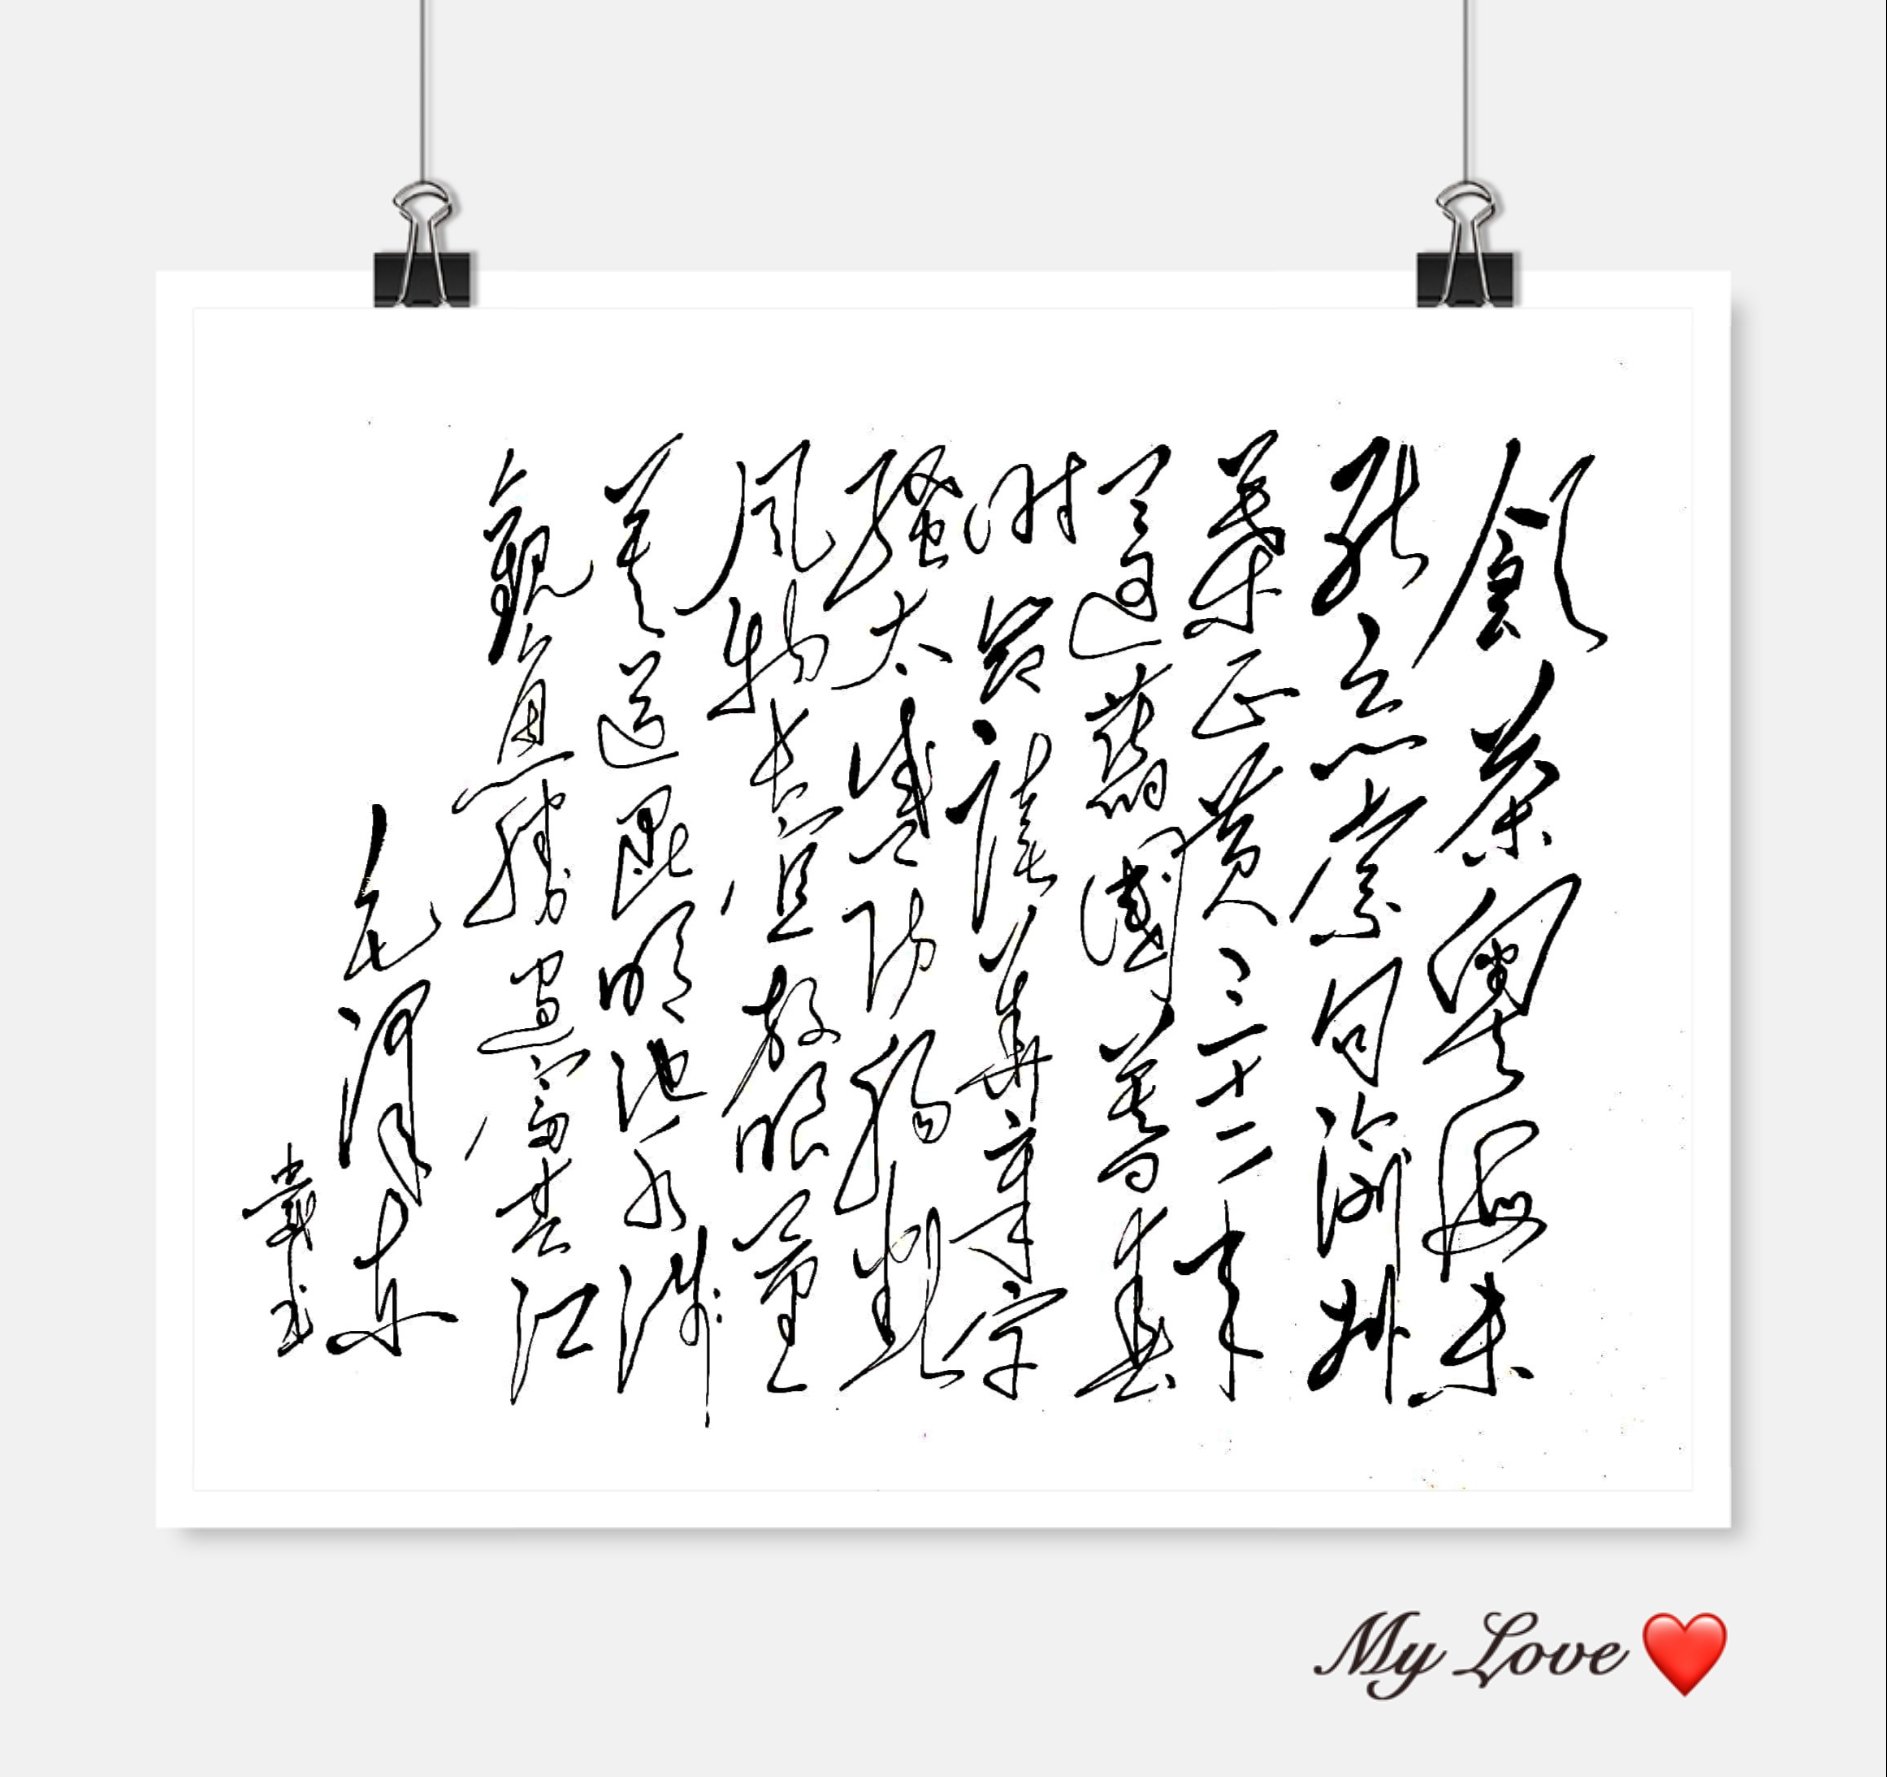 飲茶粵海未
能忘索句渝州
葉正黃三十一年
還舊國落花
時節讀華章牢
騷太盛防腸斷
風物長宜放眼量
莫道昆明池水淺
觀魚勝過富春江
毛澤東
戴
My Love